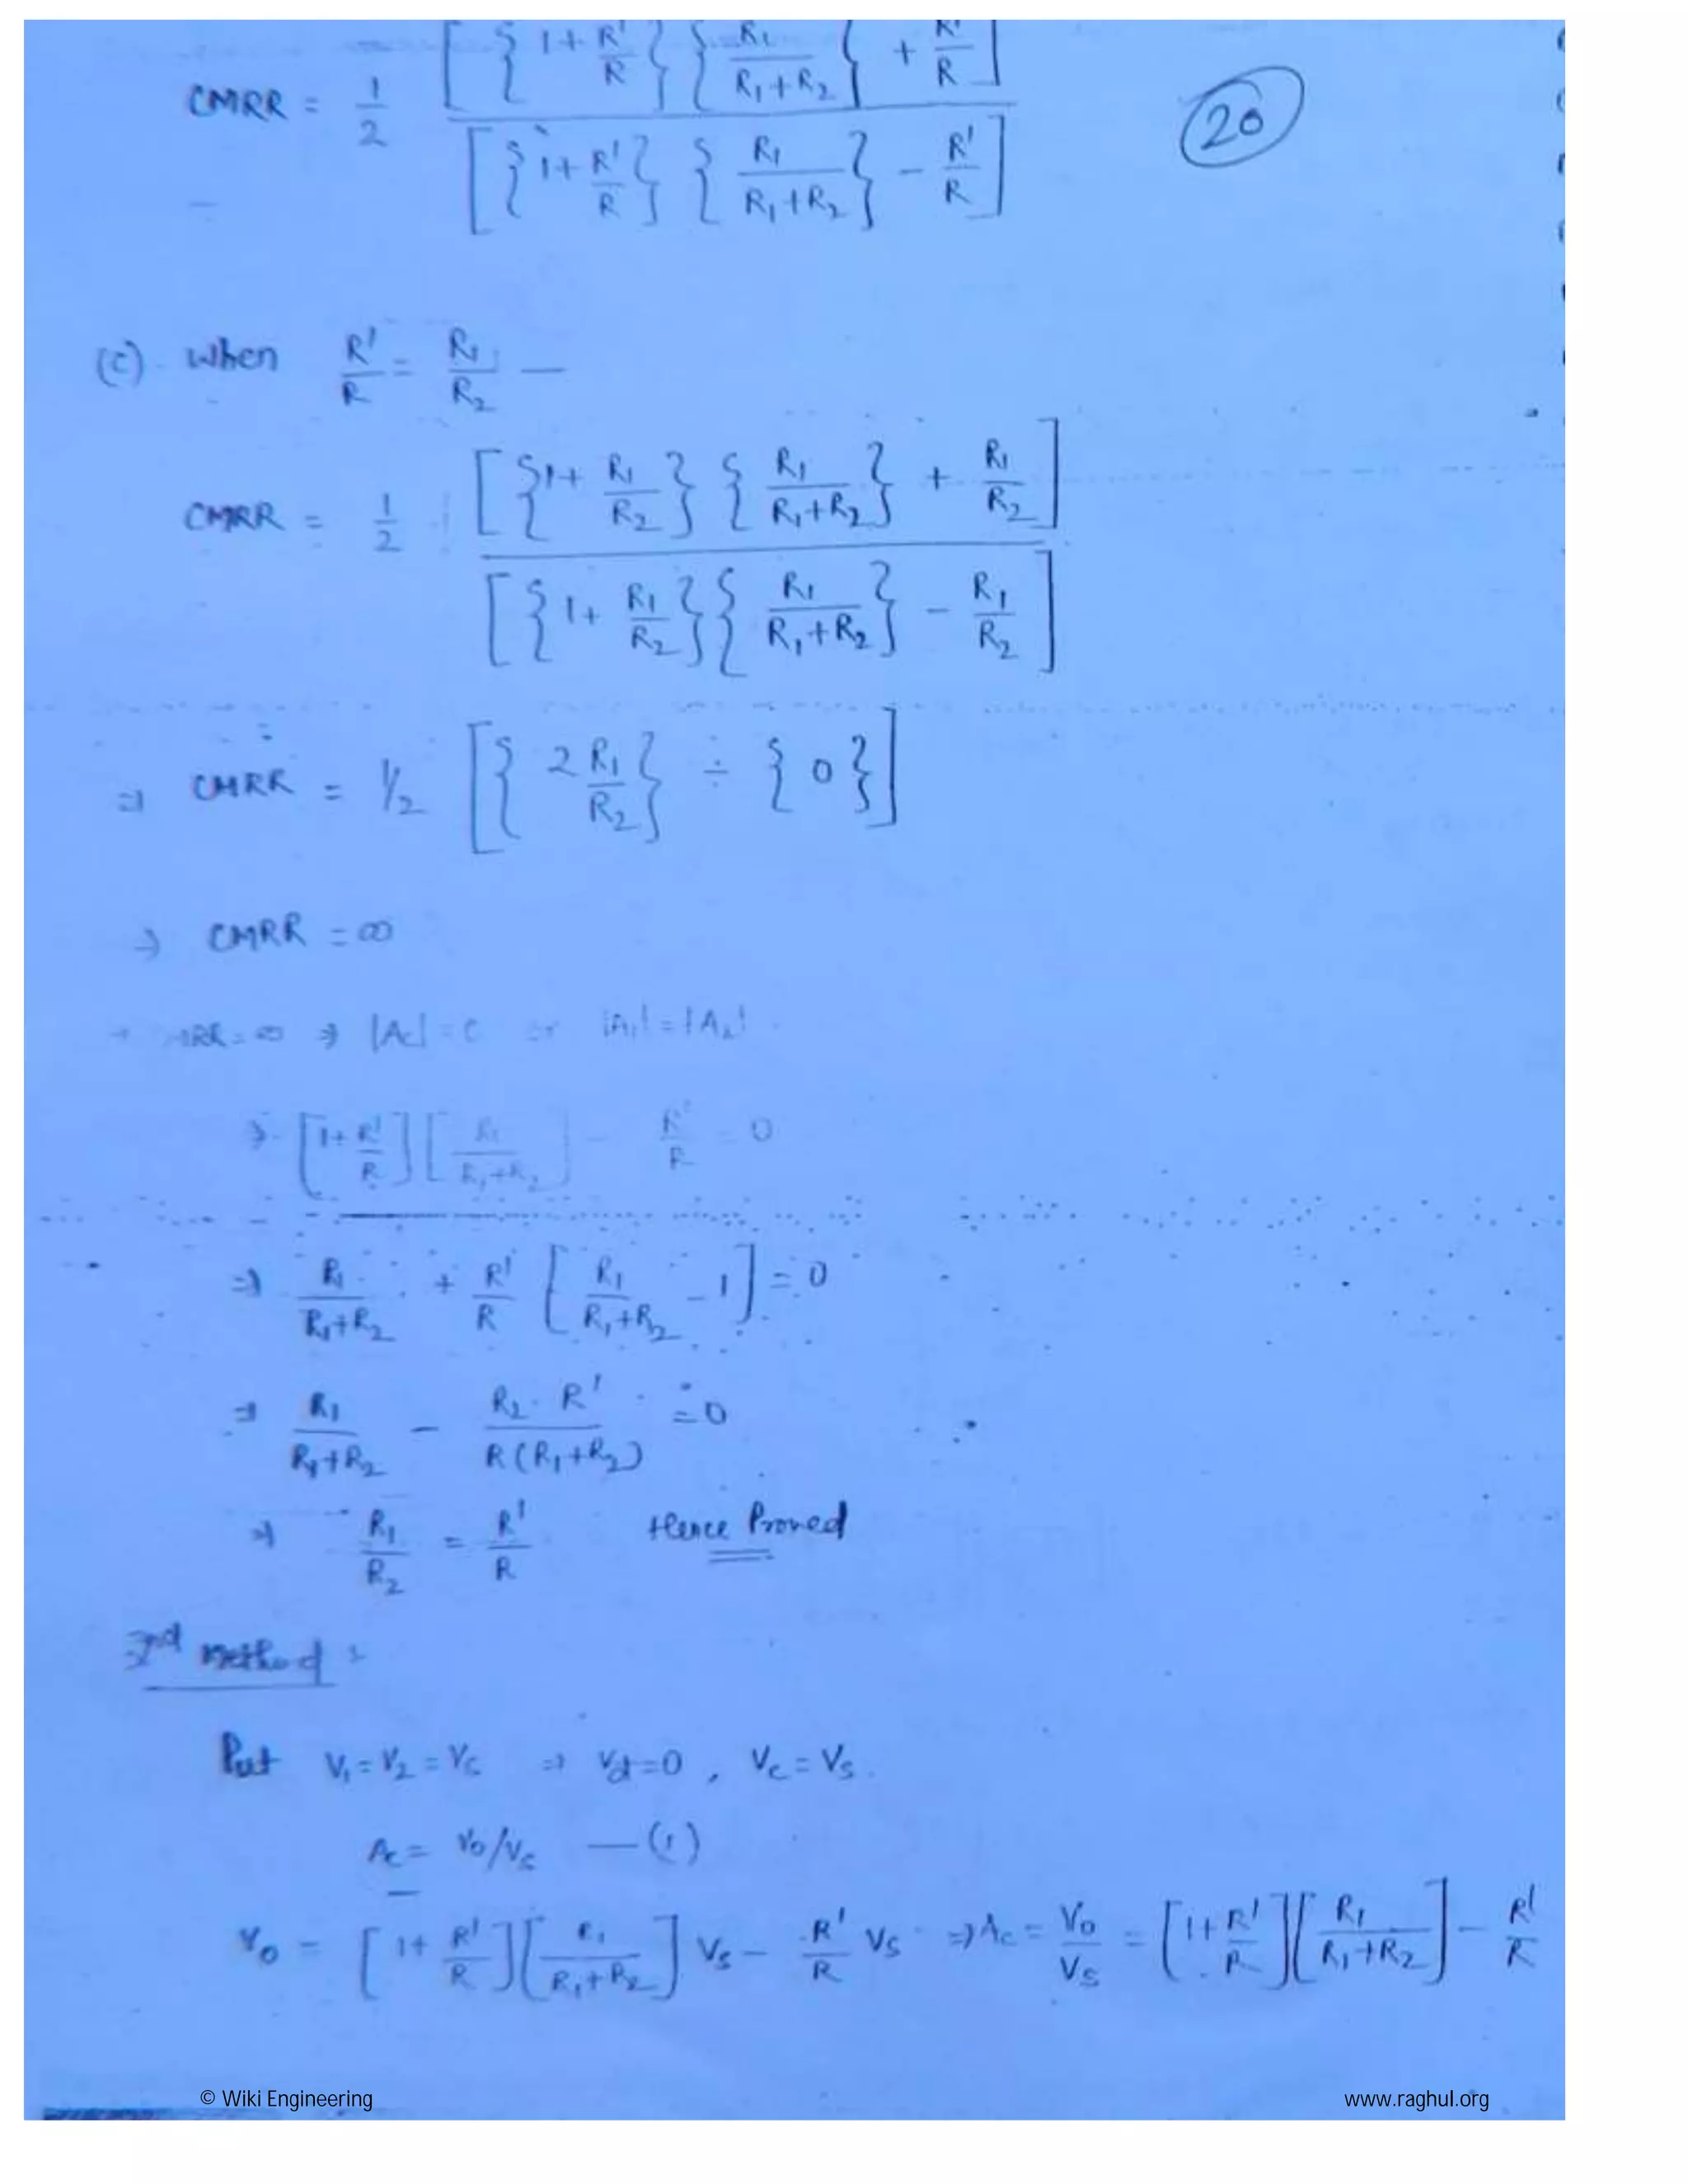 CMRR = 1/2 [{1 + R'/R} {R1/(R1+R2)} + R'/R] / [{1 + R'/R} {R1/(R1+R2)} - R'/R]
20
(c). When R'/R = R1/R2 —
CMRR = 1/2 [{1 + R1/R2} {R1/(R1+R2)} + R1/R2] / [{1 + R1/R2} {R1/(R1+R2)} - R1/R2]
⇒ CMRR = 1/2 [{2 R1/R2} ÷ {0}]
⇒ CMRR = ∞
MRR = ∞ ⇒ |Ac| = 0 or |A1| = |A2|
⇒ [1 + R'/R] [R1/(R1+R2)] - R'/R = 0
⇒ R1/(R1+R2) + R'/R [R1/(R1+R2) - 1] = 0
⇒ R1/(R1+R2) - R2·R'/R(R1+R2) = 0
⇒ R1/R2 = R'/R Hence Proved
2nd Method :
Put V1 = V2 = Vs ⇒ Vd = 0 , Vc = Vs .
Ac = Vo/Vs — (1)
Vo = [1 + R'/R] [R1/(R1+R2)] Vs - R'/R Vs ⇒ Ac = Vo/Vs = [1 + R'/R] [R1/(R1+R2)] - R'/R
© Wiki Engineering
www.raghul.org